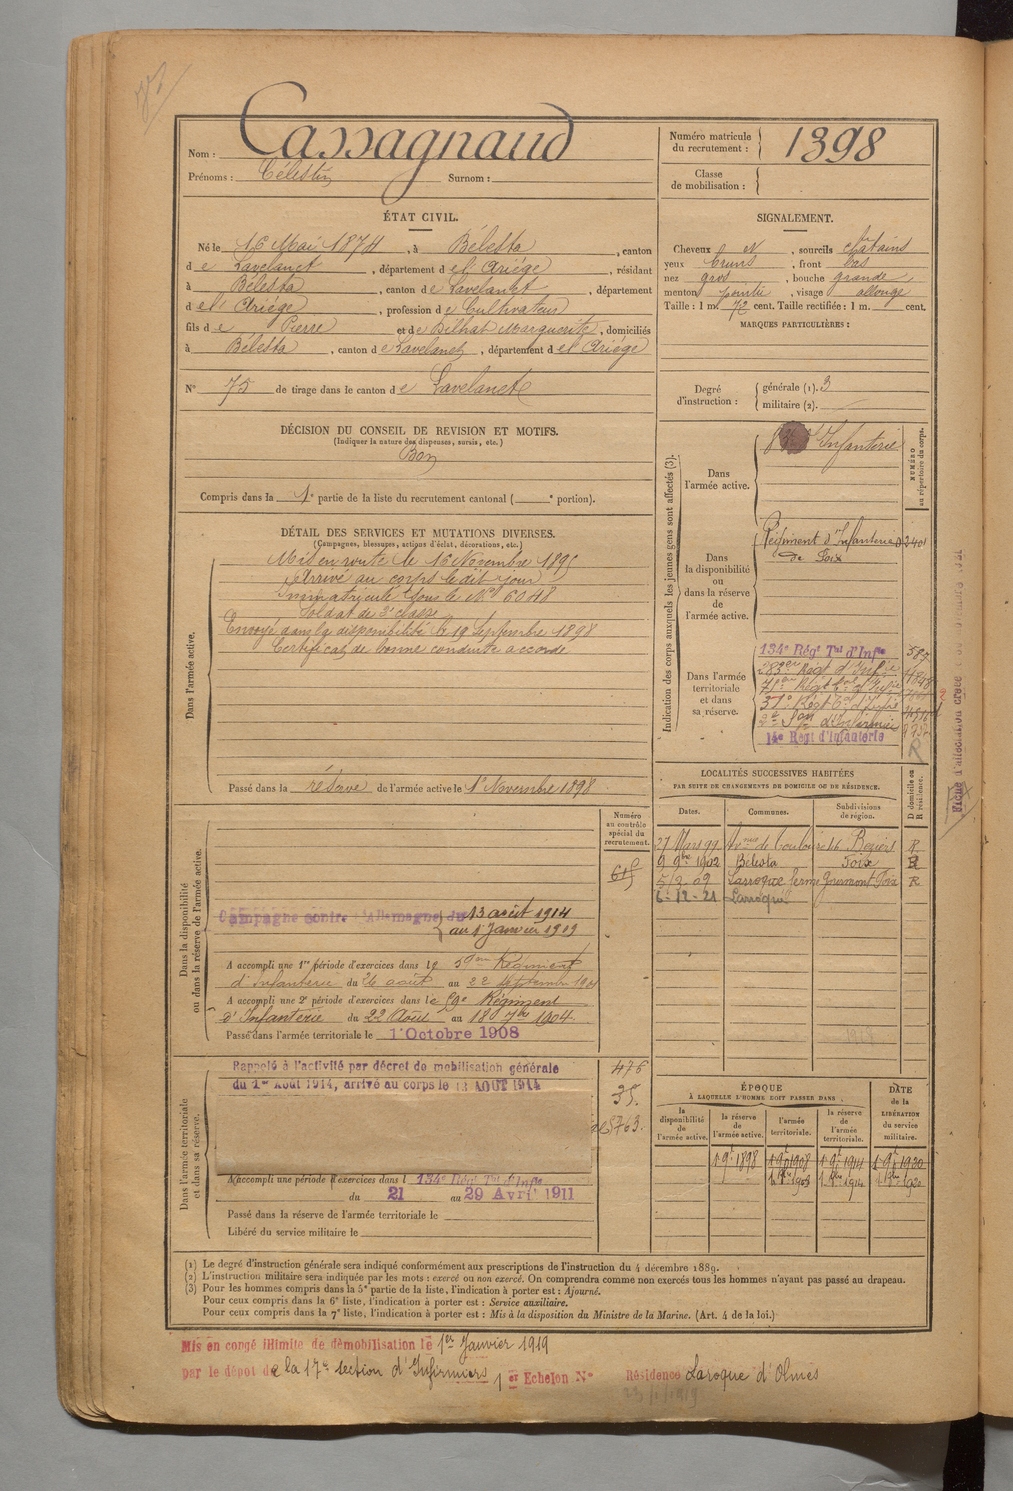 Nom : Cassagnaud
Prénoms : Célestin Surnom :
Numéro matricule du recrutement : 1398
Classe de mobilisation :
ÉTAT CIVIL.
Né le 16 Mai 1874, à Bélesta, canton
de Lavelanet, département de l'Ariège, résidant
à Bélesta, canton de Lavelanet, département
de l'Ariège, profession de Cultivateur
fils de Pierre et de Bilhat Marguerite, domiciliés
à Bélesta, canton de Lavelanet, département de l'Ariège
N° 75 de tirage dans le canton de Lavelanet
SIGNALEMENT.
Cheveux N, sourcils châtains
yeux bruns, front bas
nez gros, bouche grande
menton pointu, visage allongé
Taille : 1 m. 72 cent. Taille rectifiée : 1 m. cent.
MARQUES PARTICULIÈRES :
Degré d'instruction : générale (1). 3
militaire (2).
DÉCISION DU CONSEIL DE REVISION ET MOTIFS.
(Indiquer la nature des dispenses, sursis, etc.)
Bon
Compris dans la 1e partie de la liste du recrutement cantonal ( e portion).
DÉTAIL DES SERVICES ET MUTATIONS DIVERSES.
(Campagnes, blessures, actions d'éclat, décorations, etc.)
Dans l'armée active.
Mis en route le 16 Novembre 1895
Arrivé au corps le dit jour
Immatriculé sous le N° 6048
Soldat de 2e classe
Envoyé dans la disponibilité le 19 Septembre 1898
Certificat de bonne conduite accordé
Passé dans la réserve de l'armée active le 1er Novembre 1898
Indication des corps auxquels les jeunes gens sont affectés (3).
NUMÉRO au répertoire du corps.
Dans l'armée active.
d'Infanterie
Dans la disponibilité ou dans la réserve de l'armée active.
Régiment d'Infanterie
de Foix
Dans l'armée territoriale et dans sa réserve.
134e Régt Tal d'Infie 587
283e Regt d'Infie
14e Regt d'Infanterie
R
LOCALITÉS SUCCESSIVES HABITÉES
PAR SUITE DE CHANGEMENTS DE DOMICILE OU DE RÉSIDENCE.
Dates. Communes. Subdivisions de région. D domicile ou R résidence.
27 Mars 99 Béziers R
9 9bre 1902 Bélesta Foix
5/2-09 Larroque Foix R
6-12-21 Larroque
Dans la disponibilité ou dans la réserve de l'armée active.
Numéro au contrôle spécial du recrutement.
615
Campagne contre l'Allemagne du 13 août 1914
au 1 Janvier 1919
A accompli une 1re période d'exercices dans le 59e Régiment
d'Infanterie du 26 août au 22 Septembre 1901
A accompli une 2e période d'exercices dans le 59e Régiment
d'Infanterie du 22 Août au 18 7bre 1904.
Passé dans l'armée territoriale le 1er Octobre 1908
Dans l'armée territoriale et dans sa réserve.
Rappelé à l'activité par décret de mobilisation générale
du 1er Août 1914, arrivé au corps le 13 AOUT 1914
476
35.
A accompli une période d'exercices dans l 134e Régt Tal d'Infie
du 21 au 29 Avril 1911
Passé dans la réserve de l'armée territoriale le
Libéré du service militaire le
ÉPOQUE
À LAQUELLE L'HOMME DOIT PASSER DANS
la disponibilité de l'armée active. la réserve de l'armée active. l'armée territoriale. la réserve de l'armée territoriale.
DATE de la LIBÉRATION du service militaire.
1 9bre 1898 1 9bre 1908 1 9bre 1914 1 9bre 1920
(1) Le degré d'instruction générale sera indiqué conformément aux prescriptions de l'instruction du 4 décembre 1889.
(2) L'instruction militaire sera indiquée par les mots : exercé ou non exercé. On comprendra comme non exercés tous les hommes n'ayant pas passé au drapeau.
(3) Pour les hommes compris dans la 5e partie de la liste, l'indication à porter est : Ajourné.
Pour ceux compris dans la 6e liste, l'indication à porter est : Service auxiliaire.
Pour ceux compris dans la 7e liste, l'indication à porter est : Mis à la disposition du Ministre de la Marine. (Art. 4 de la loi.)
Mis en congé illimité de démobilisation le 1er Janvier 1919
par le dépôt de la 17e section d'Infirmiers 1er Echelon N° Résidence Laroque d'Olmes